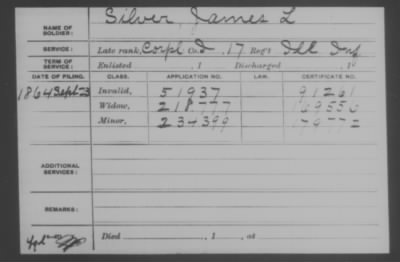 NAME OF SOLDIER: Silver, James L
SERVICE: Late rank, Corpl Co. D, 17 Reg't Ill Inf
TERM OF SERVICE: Enlisted , 1 Discharged , 1
DATE OF FILING. CLASS. APPLICATION NO. LAW. CERTIFICATE NO.
1864 Sept 23 Invalid, 51937 91261
Widow, 218.777 169556
Minor, 234399 179772
ADDITIONAL SERVICES:
REMARKS:
Died , 1 , at